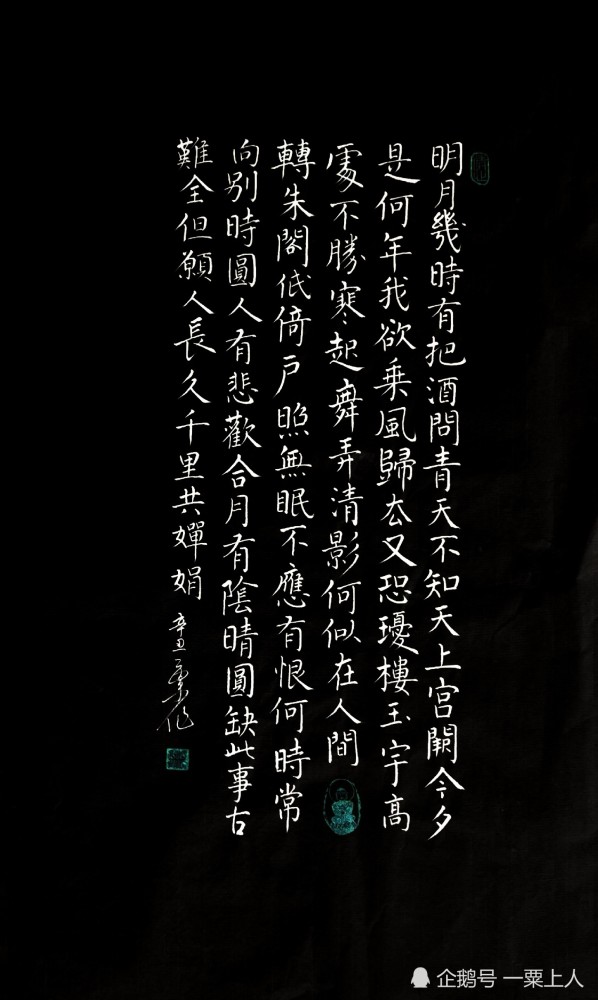 明月幾時有把酒問青天不知天上宮闕今夕
是何年我欲乘風歸去又恐瓊樓玉宇高
處不勝寒起舞弄清影何似在人間
轉朱閣低倚戶照無眠不應有恨何時常
向别時圓人有悲歡合月有陰晴圓缺此事古
難全但願人長久千里共嬋娟
辛丑一粟作
企鹅号 一粟上人